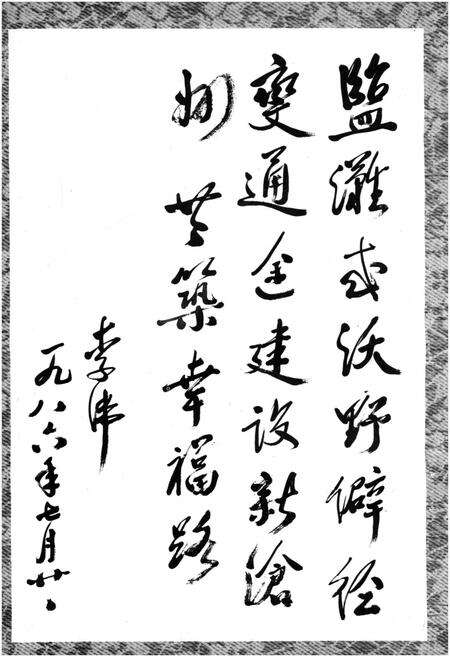 鹽灘成沃野僻径
變通途建设新滄
州 共築幸福路
李伟
一九八六年七月廿